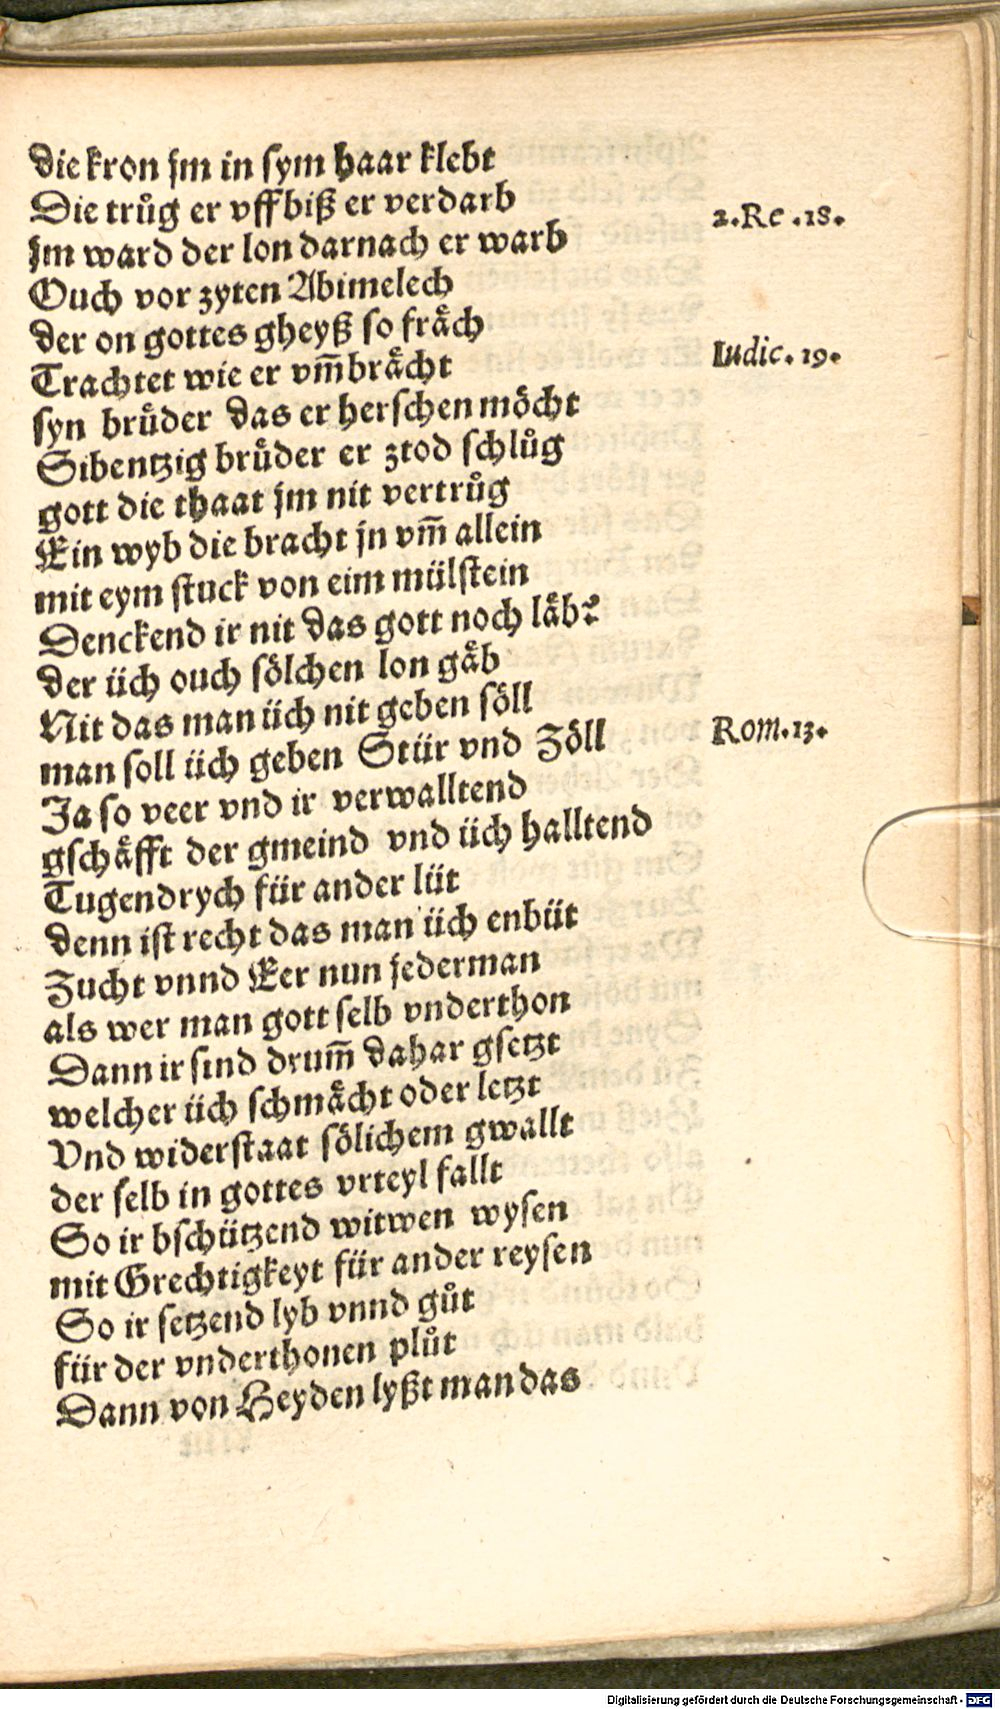 die kron jm in sym haar klebt
Die truͦg er vff biß er verdarb
Jm ward der lon darnach er warb
2.Re.18.
Ouch vor zyten Abimelech
der on gottes gheyß so fraͤch
Trachtet wie er vm̃braͤcht
Iudic.19.
syn bruͤder das er herschen moͤcht
Sibentzig bruͤder er ztod schluͦg
gott die thaat jm nit vertruͦg
Ein wyb die bracht jn vm̃ allein
mit eym stuck von eim mülstein
Denckend ir nit das gott noch laͤb?
der üch ouch soͤlchen lon gaͤb
Nit das man üch nit geben soͤll
man soll üch geben Stür vnd Zoͤll
Rom.13.
Ja so veer vnd ir verwalltend
gschaͤfft der gmeind vnd üch halltend
Tugendrych für ander lüt
denn ist recht das man üch enbüt
Zucht vnnd Eer nun jederman
als wer man gott selb vnderthon
Dann ir sind drum̃ dahar gsetzt
welcher üch schmaͤcht oder letzt
Vnd widerstaat soͤlichem gwallt
der selb in gottes vrteyl fallt
So ir bschützend witwen wysen
mit Grechtigkeyt für ander reysen
So ir setzend lyb vnnd guͦt
für der vnderthonen pluͦt
Dann von Heyden lyßt man das
Digitalisierung gefördert durch die Deutsche Forschungsgemeinschaft - DFG